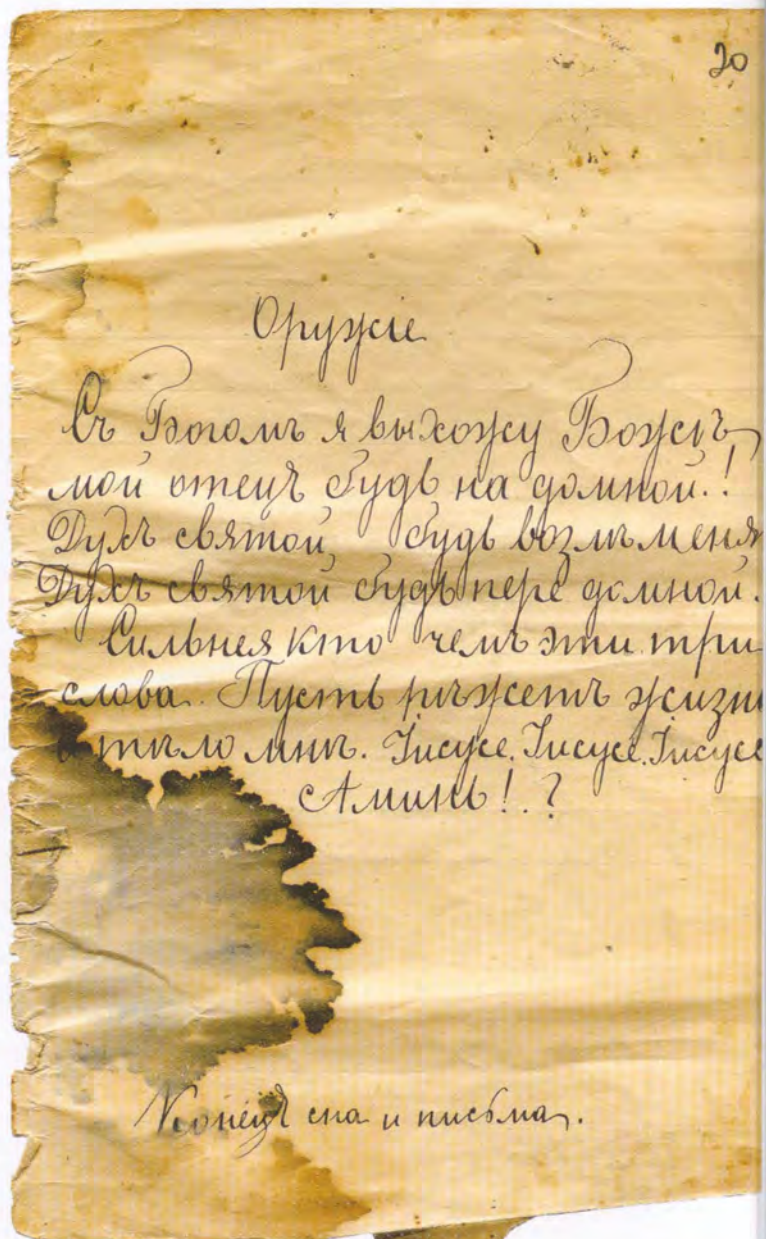 20
Оружіе
Съ Богомъ я выхожу Божъ
мой отецъ будь на домной.!
Духъ святой будь возлѣ меня
Духъ святой будь пере домной.
Сильнея кто чемъ эти три
слова. Пусть рѣжетъ жизнь
и тѣло мнѣ. Іисусе. Іисусе. Іисусе
Аминь!.?
Конецъ сна и письма.